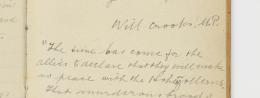 Will Crooks. M.P.
"The time has come for the
allies to declare that they will make
no peace with the Hohenzollerns,
that murderous brood